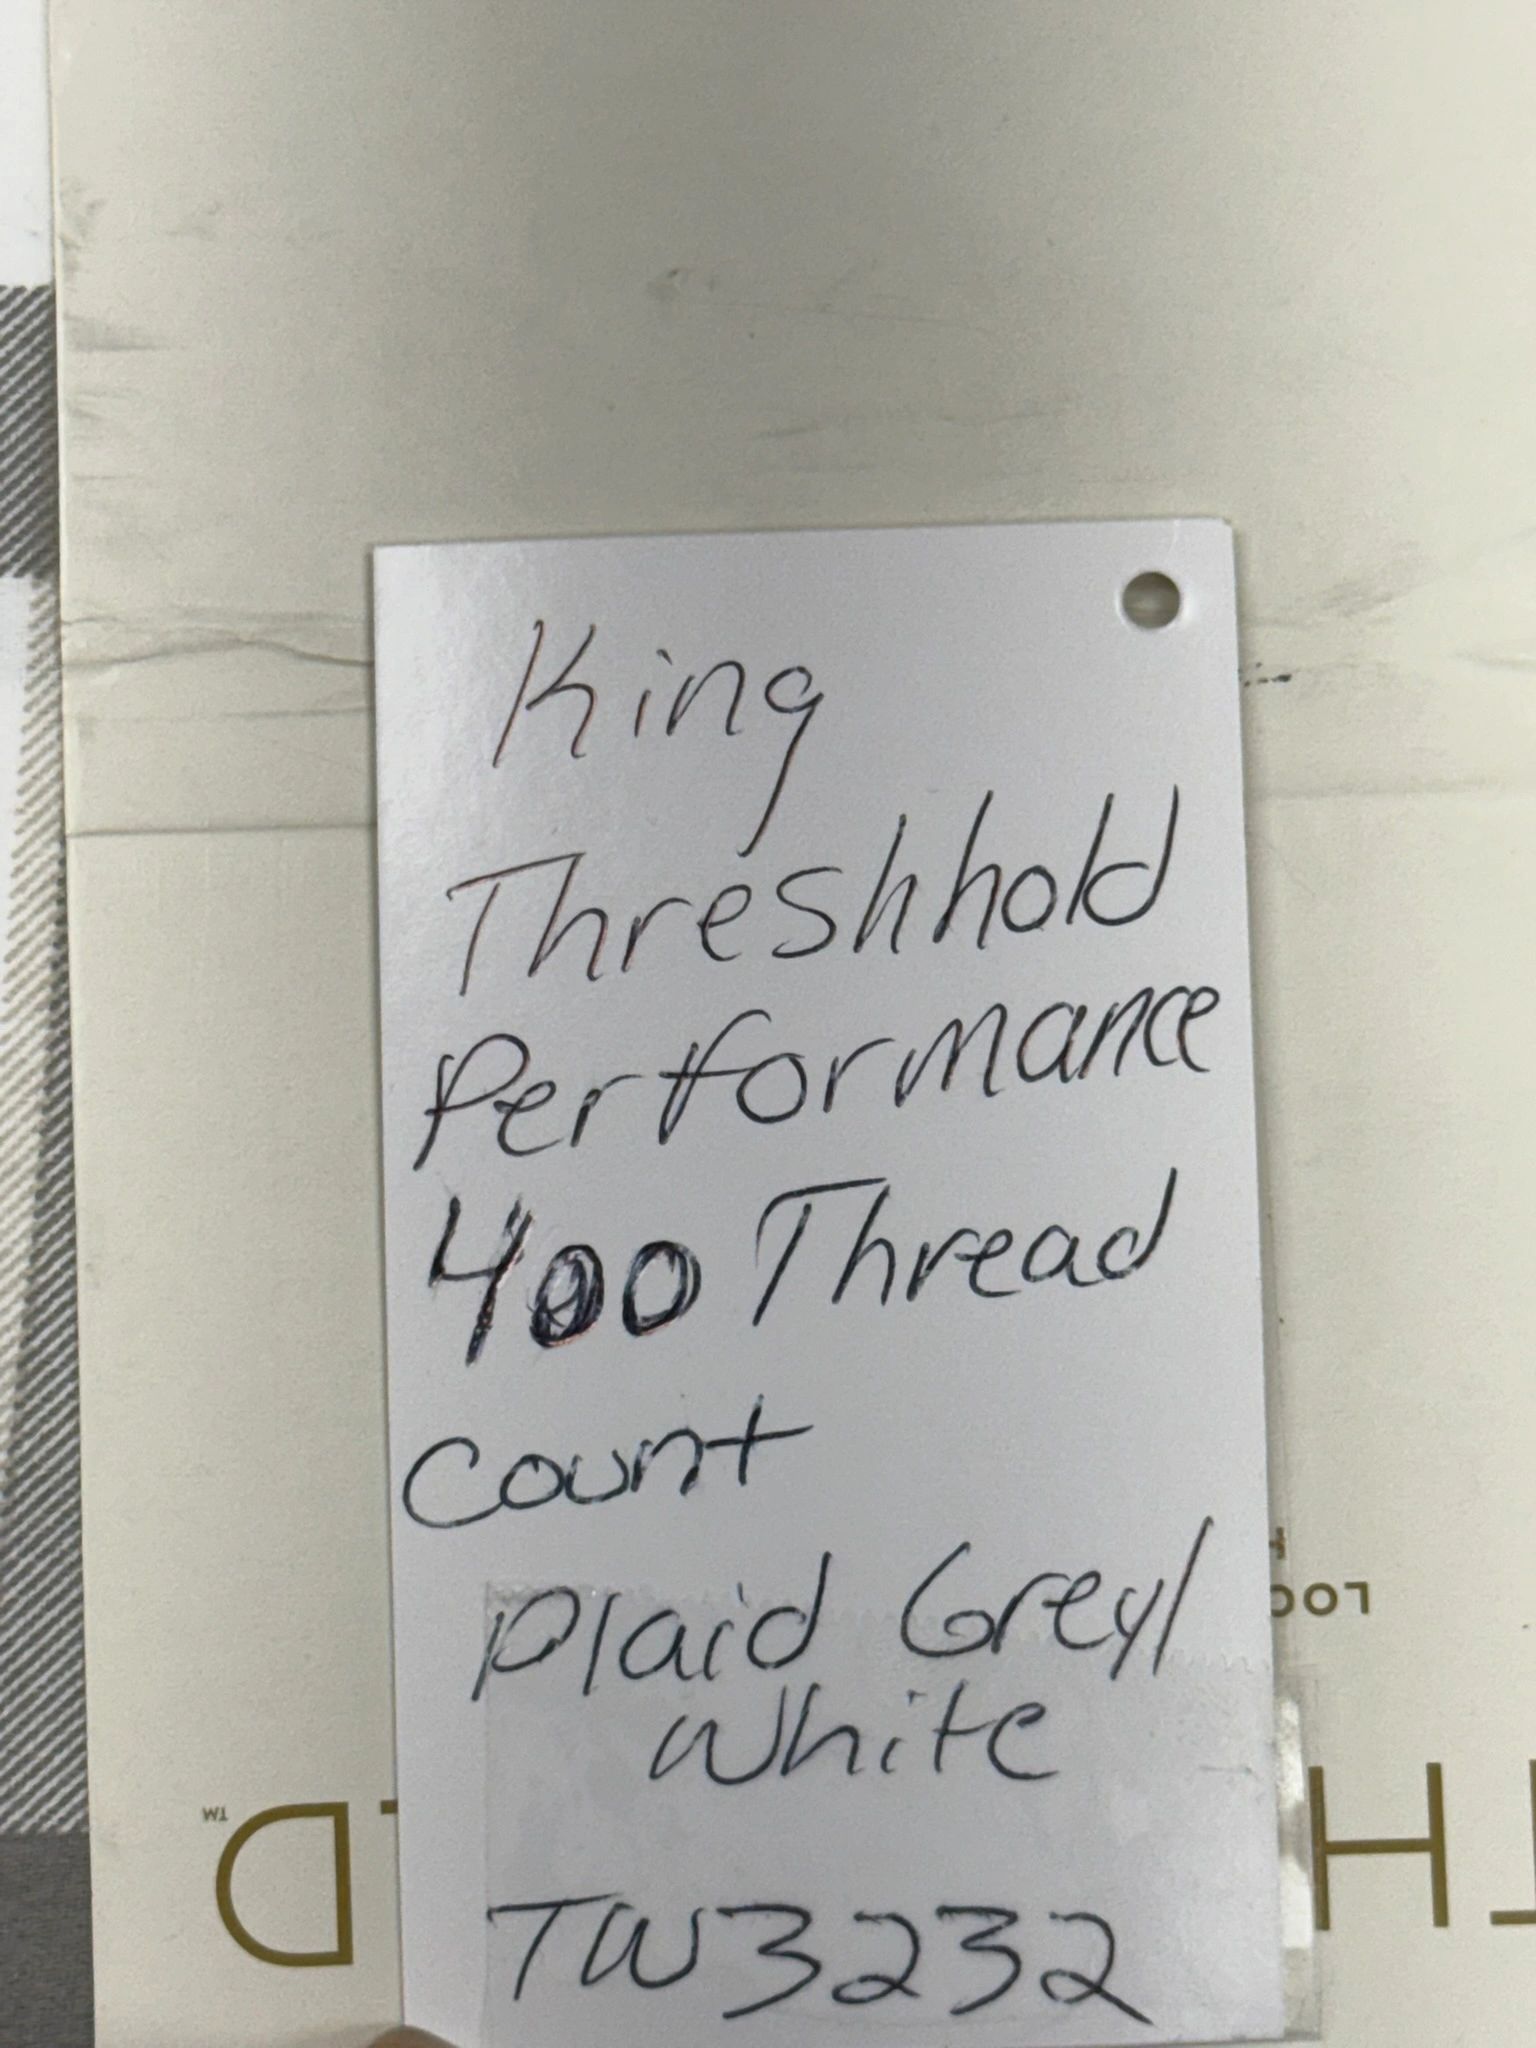 King
Threshhold
Performance
400 Thread
Count
Plaid Grey/
White
TW3232
LOO
TH
D™